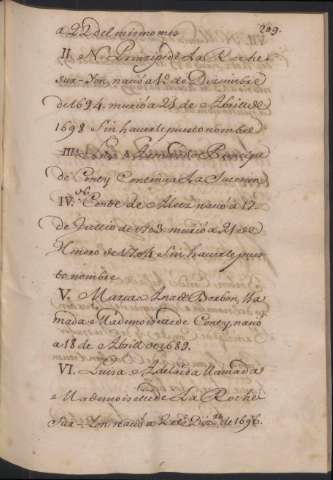 209.
a 22 del mismo mes
II. N. Principe de La Roche
sur-Yon nacio a 1º de Diciembre
de 1694. murio a 25 de Abril de
1698 Sin haverle puesto nombre
III. Luis Armando Principe
de Conty Continúa La Sucesion
IV. N. Conde de Alez nacio a 17
de Jullio de 1703 murio a 21 de
Henero de 1704 Sin haverle pues-
to nombre
V. Maria Ana de Borbon, lla
mada Mademoisele de Conty, nacio
a 18 de Abril de 1689.
VI. Luisa Adelaida llamada
Mademoisele de La Roche
Sur-Yon nacio a 2 de Dizre de 1696.